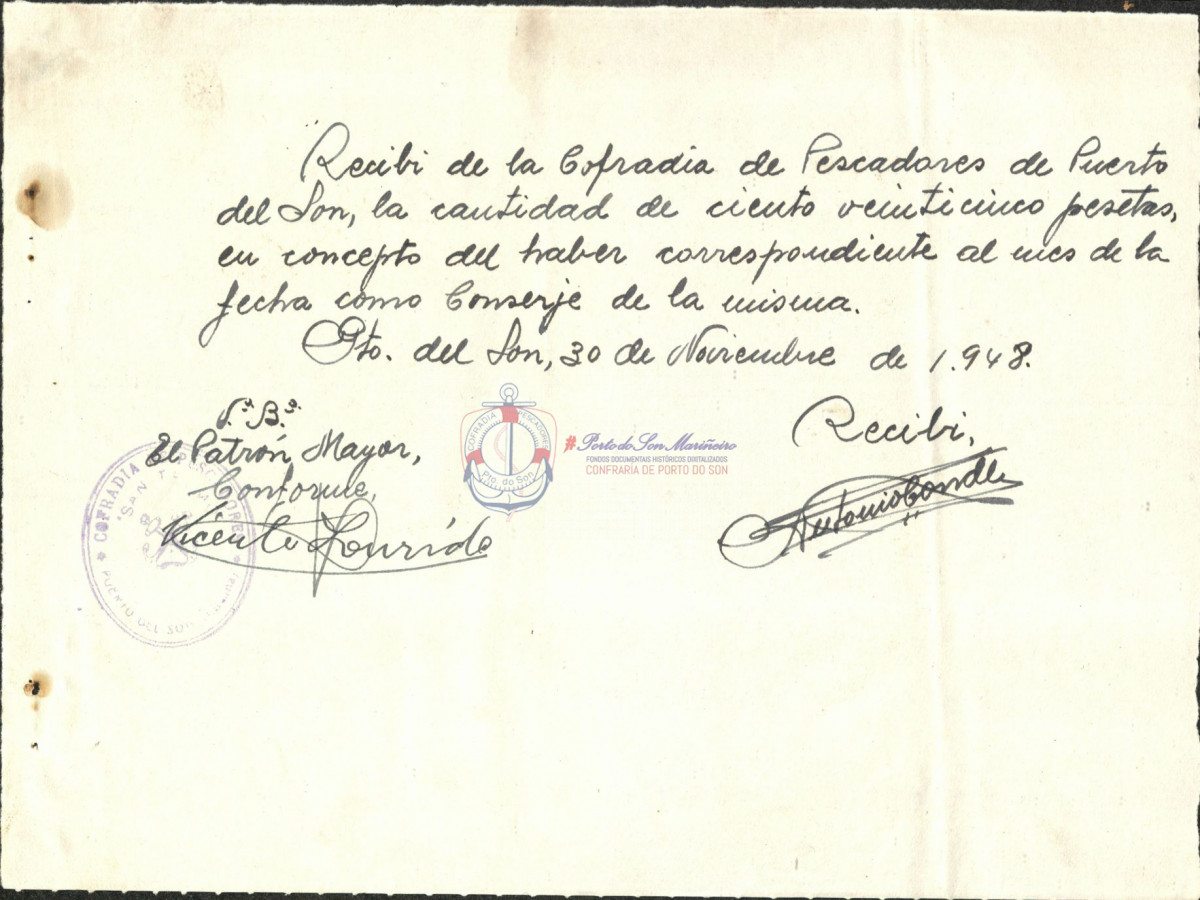 Recibi de la Cofradia de Pescadores de Puerto
del Son, la cantidad de ciento veinticinco pesetas,
en concepto del haber correspondiente al mes de la
fecha como Conserje de la misma.
Pto. del Son, 30 de Noviembre de 1.948.
Vº. Bº.
El Patrón Mayor,
Conforme,
Vicente Lourido
Recibi,
Antonio Conde
COFRADIA PESCADORES
Pto. do Son
#Porto do Son Mariñeiro
FONDOS DOCUMENTAIS HISTÓRICOS DIXITALIZADOS
CONFRARÍA DE PORTO DO SON
COFRADIA PESCADORES
PUERTO DEL SON